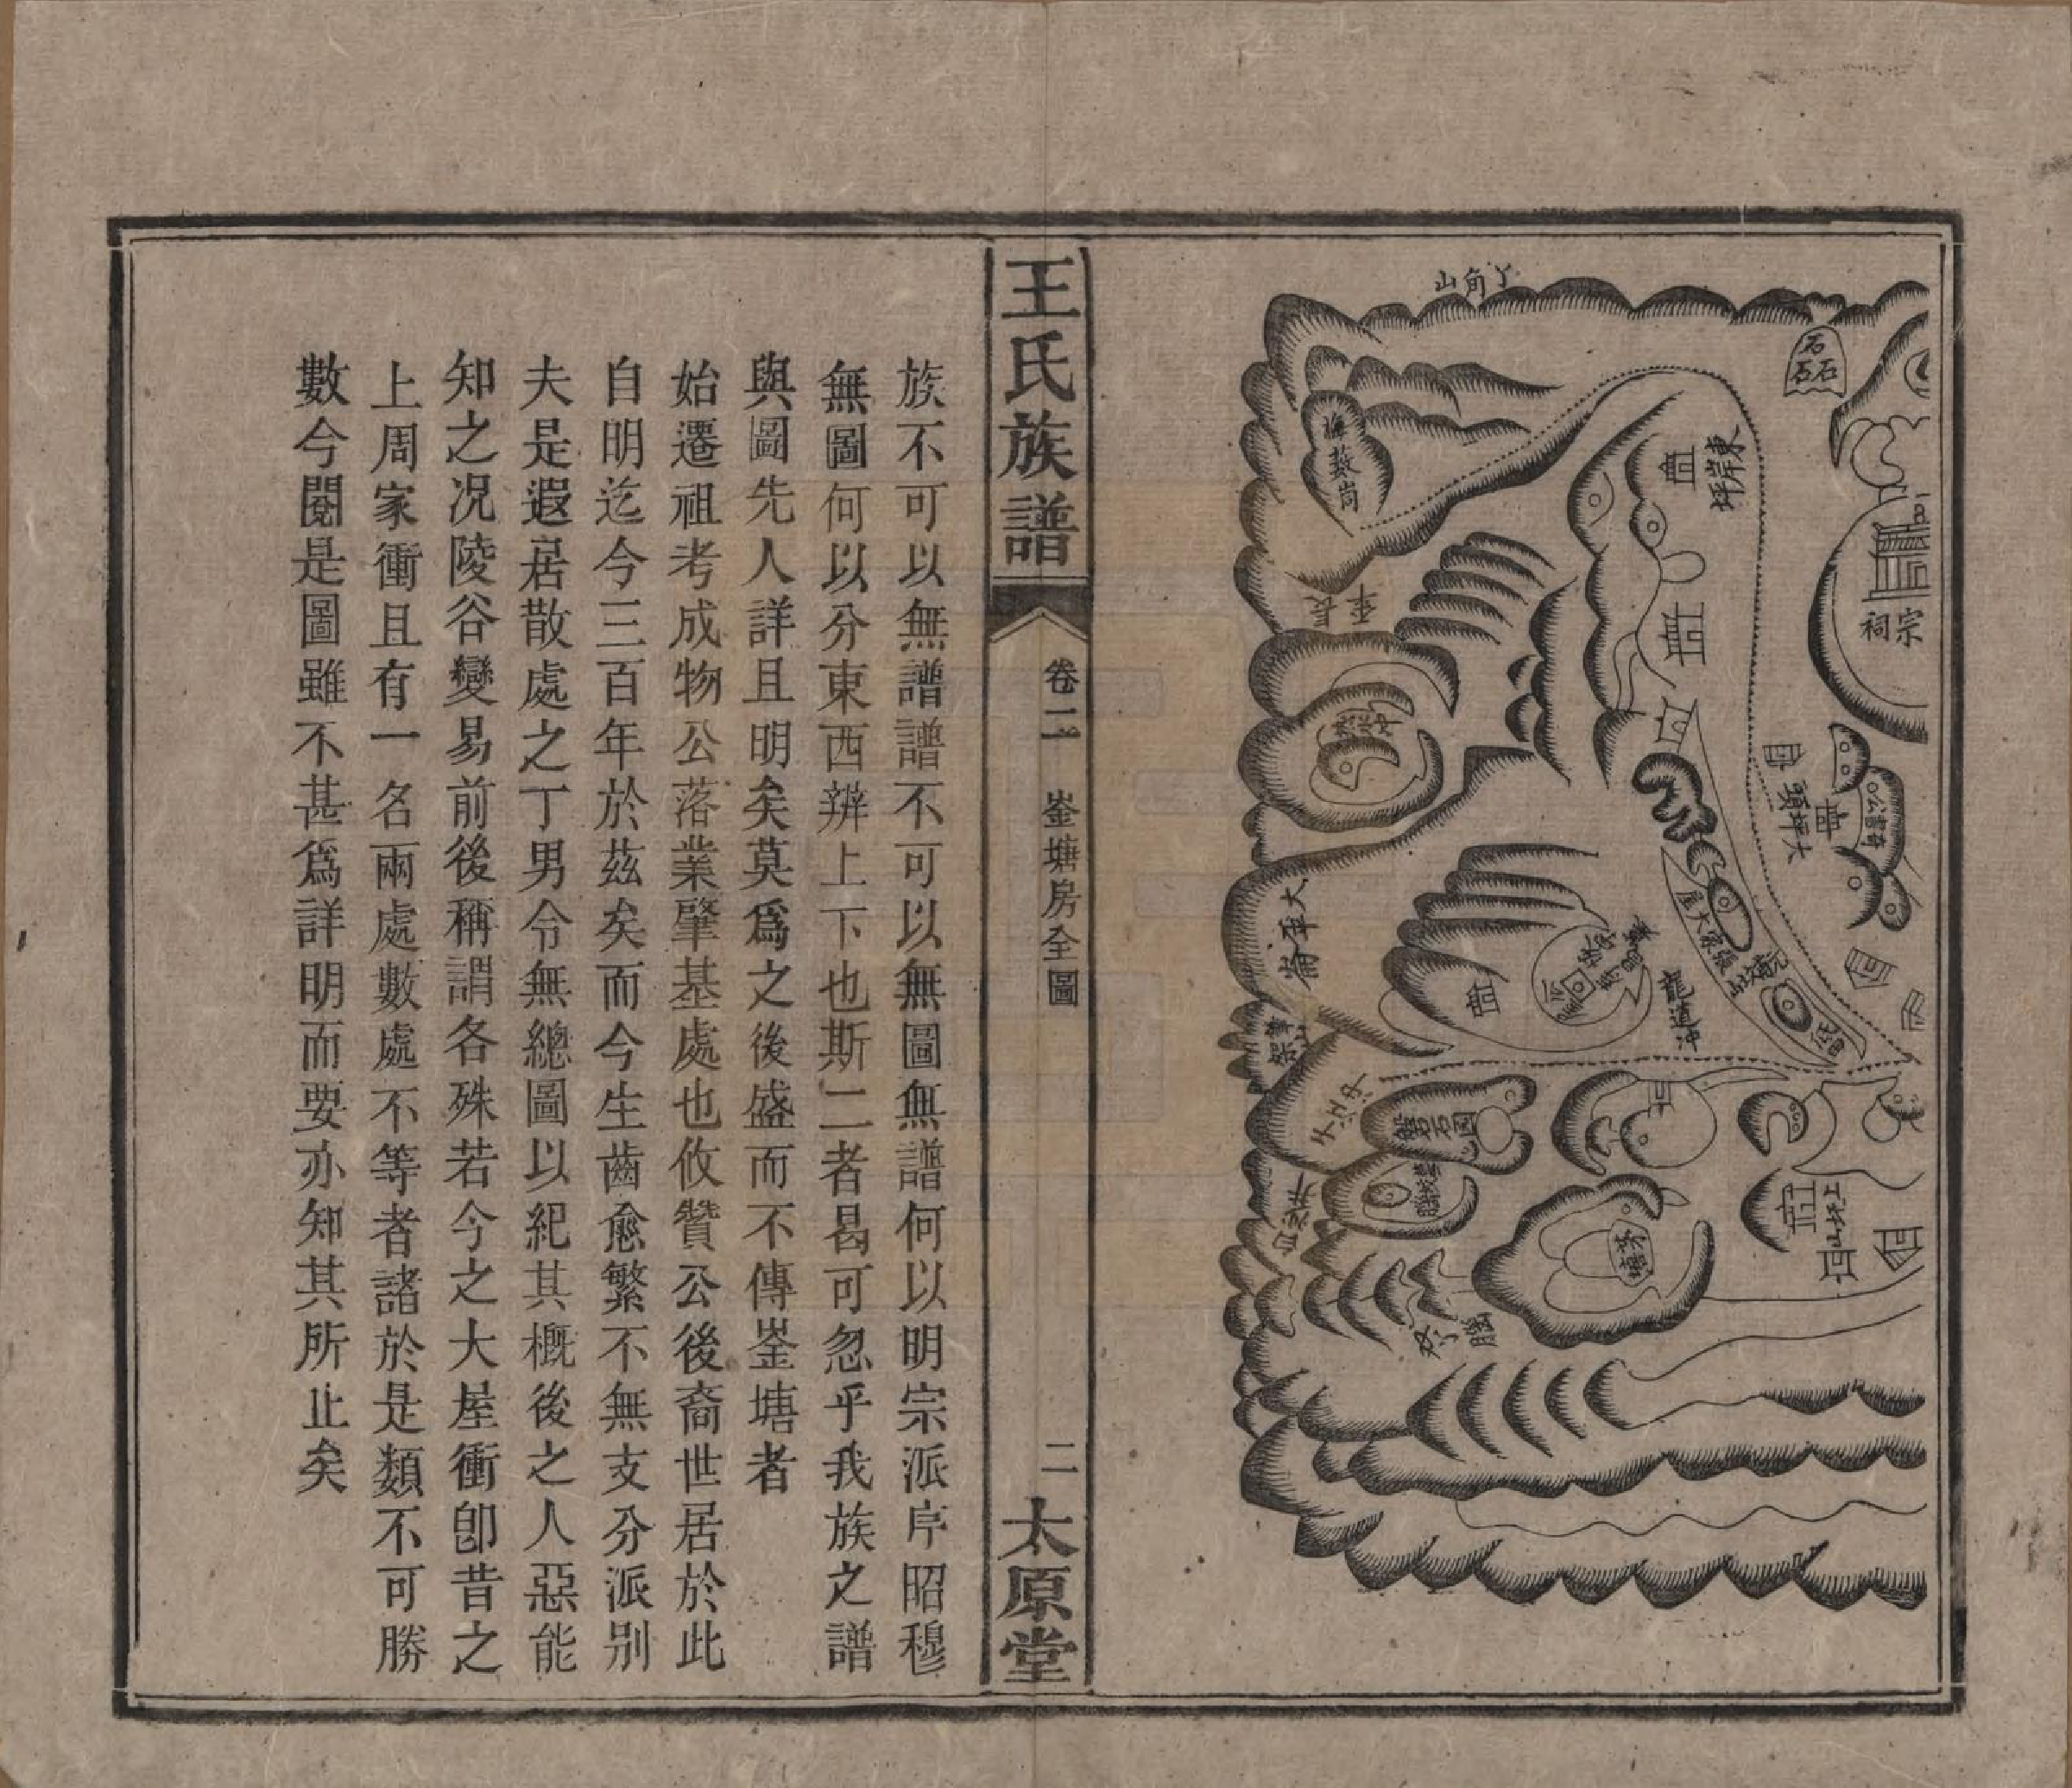 丫角山
石石石
東岸坪
宗祠
大坪頭
張家大屋
龍道沖
大軍崙
筆架山
磐石園
茅塘
上坟山
王氏族譜
卷二
崟塘房全圖
二
太原堂
族不可以無譜譜不可以無圖無譜何以明宗派序昭穆
無圖何以分東西辨上下也斯二者曷可忽乎我族之譜
與圖先人詳且明矣莫爲之後盛而不傳崟塘者
始遷祖考成物公落業肇基處也攸贊公後裔世居於此
自明迄今三百年於茲矣而今生齒愈繁不無支分派别
夫是遐居散處之丁男令無總圖以紀其概後之人惡能
知之况陵谷變易前後稱謂各殊若今之大屋衝卽昔之
上周家衝且有一名兩處數處不等者諸於是類不可勝
數今閱是圖雖不甚爲詳明而要亦知其所止矣